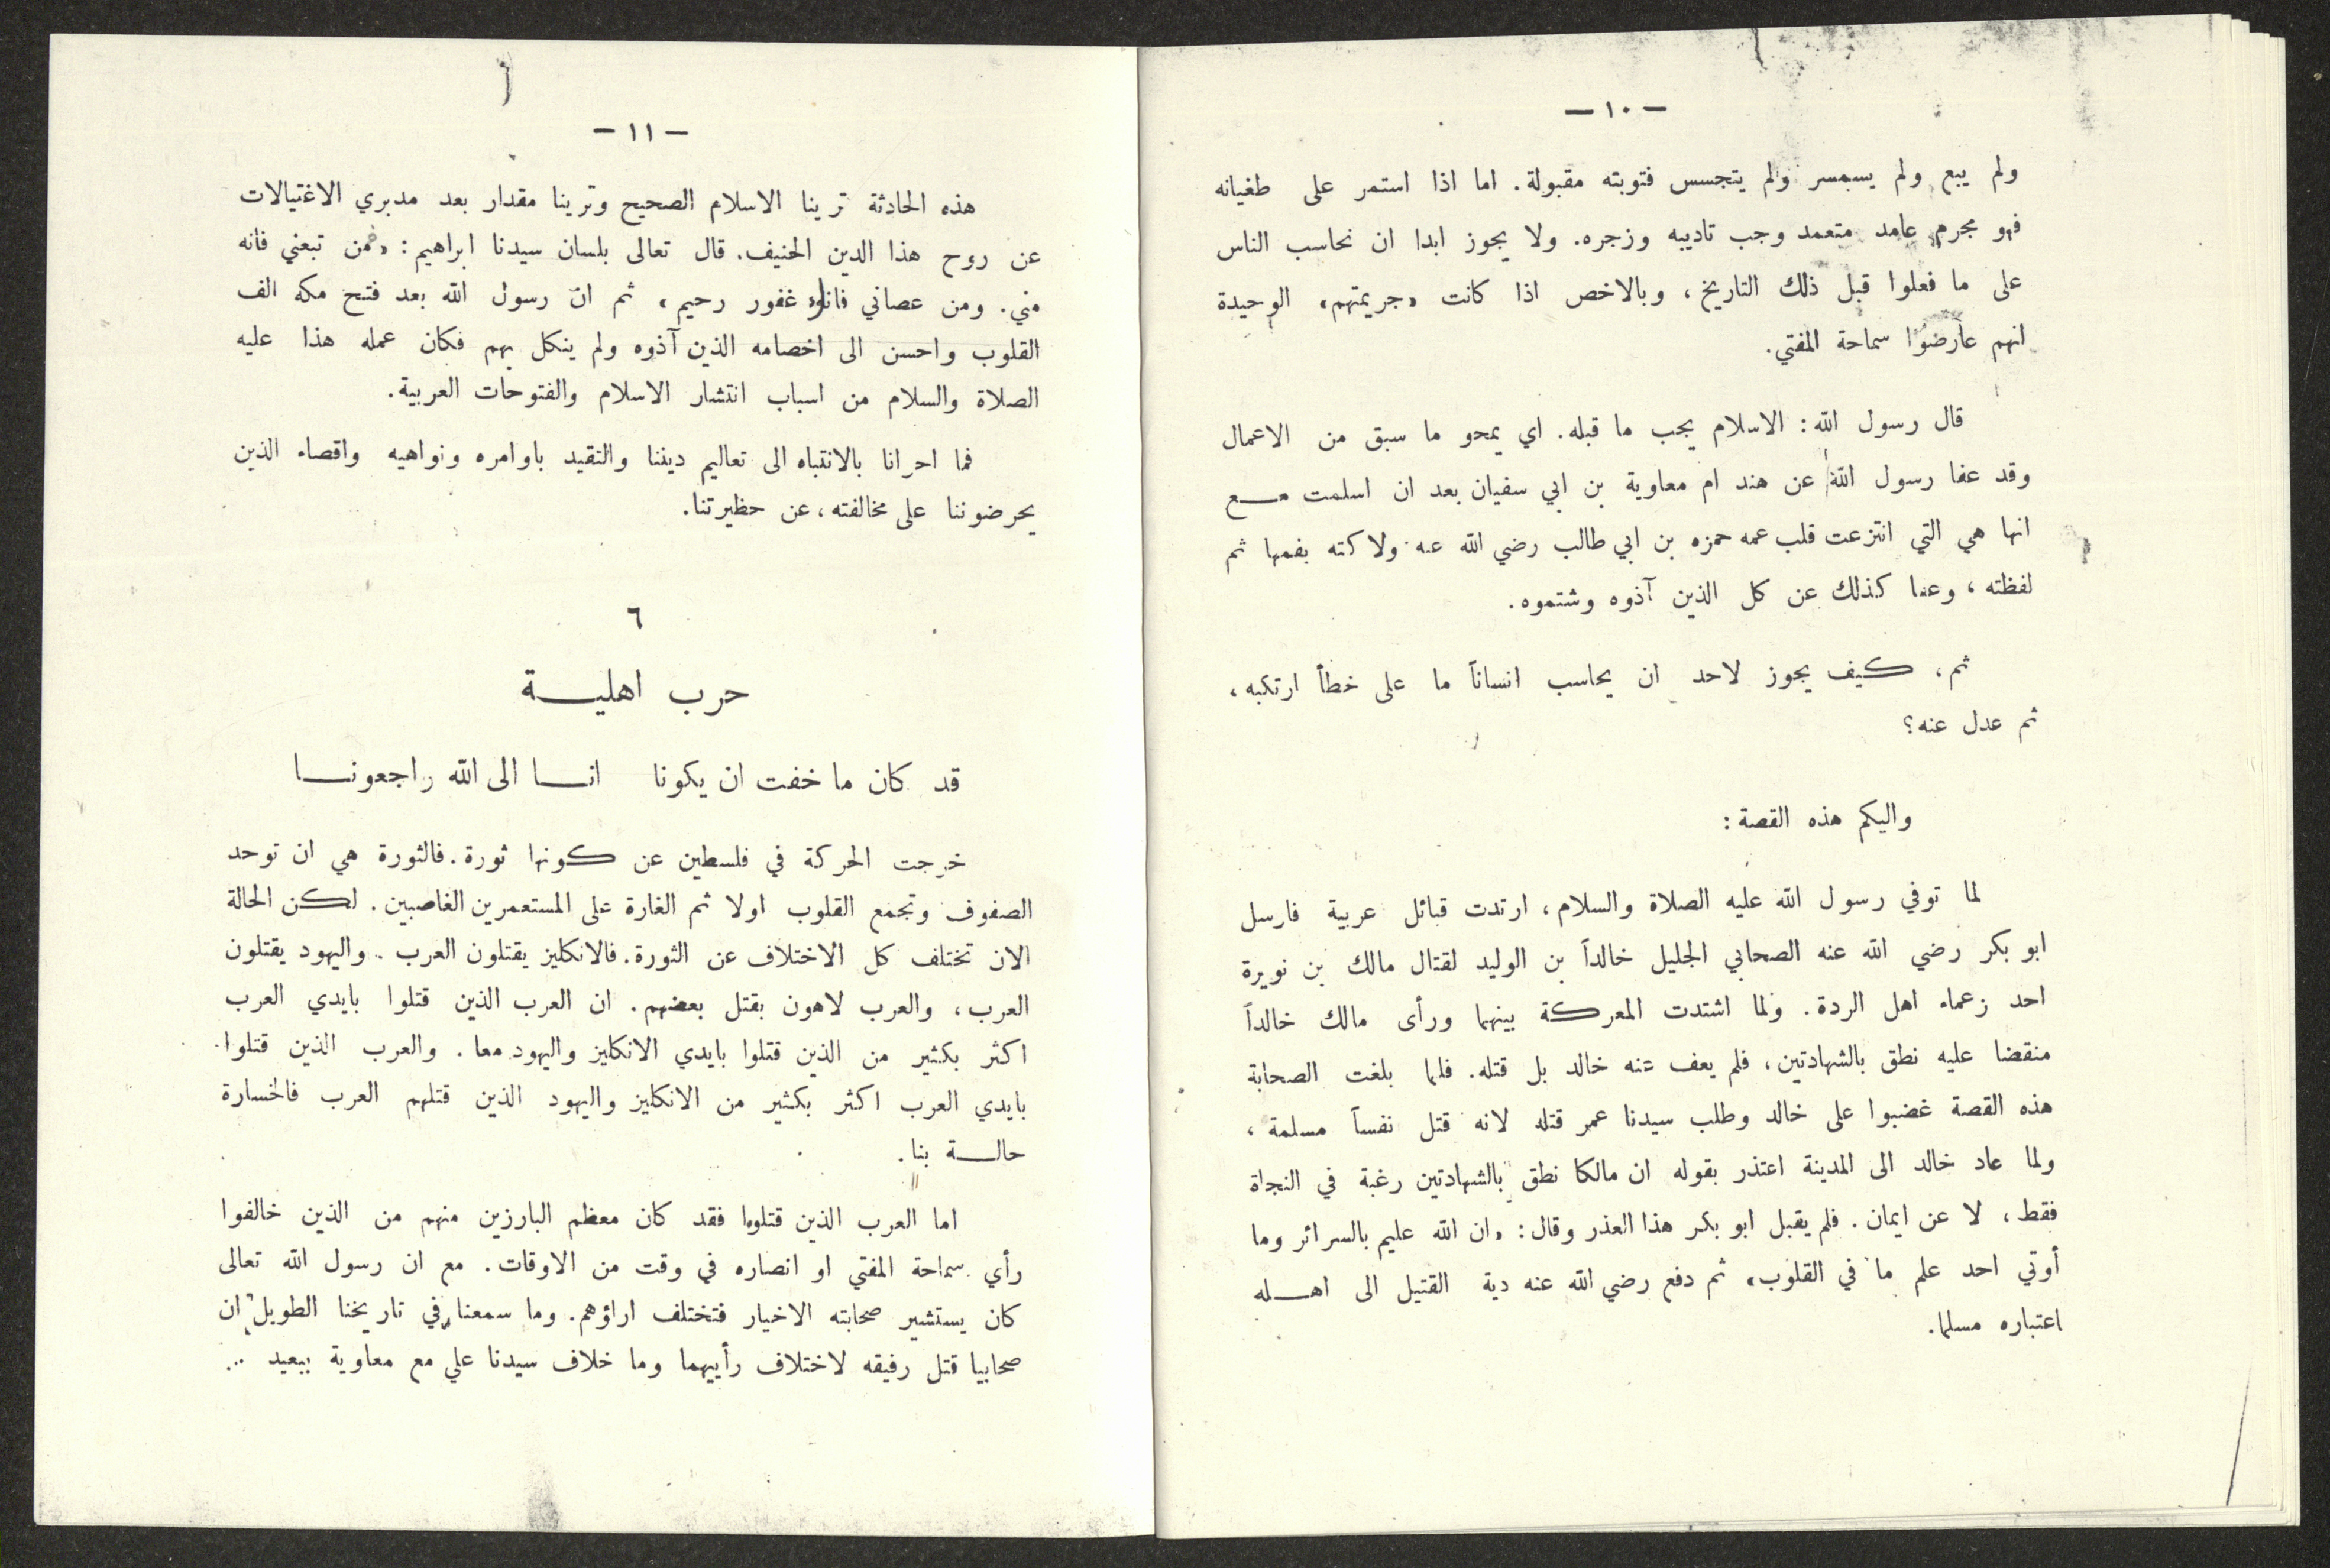 — ١٠ —
ولم يبع ولم يسمسر ولم يتجسس فتوبته مقبولة. اما اذا استمر على طغيانه
فهو مجرم عامد متعمد وجب تاديبه وزجره. ولا يجوز ابدا ان نحاسب الناس
على ما فعلوا قبل ذلك التاريخ، وبالاخص اذا كانت «جريمتهم» الوحيدة
انهم عارضوا سماحة المفتي.
قال رسول الله: الاسلام يجب ما قبله. اي يمحو ما سبق من الاعمال
وقد عفا رسول الله عن هند ام معاوية بن ابي سفيان بعد ان اسلمت مع
انها هي التي انتزعت قلب عمه حمزه بن ابي طالب رضي الله عنه ولاكته بفمها ثم
لفظته، وعفا كذلك عن كل الذين آذوه وشتموه.
ثم، كيف يجوز لاحد ان يحاسب انساناً ما على خطأ ارتكبه،
ثم عدل عنه؟
واليكم هذه القصة:
لما توفي رسول الله عليه الصلاة والسلام، ارتدت قبائل عربية فارسل
ابو بكر رضي الله عنه الصحابي الجليل خالداً بن الوليد لقتال مالك بن نويرة
احد زعماء اهل الردة. ولما اشتدت المعركة بينهما ورأى مالك خالداً
منقضا عليه نطق بالشهادتين، فلم يعف عنه خالد بل قتله. فلما بلغت الصحابة
هذه القصة غضبوا على خالد وطلب سيدنا عمر قتله لانه قتل نفساً مسلمة،
ولما عاد خالد الى المدينة اعتذر بقوله ان مالكا نطق بالشهادتين رغبة في النجاة
فقط، لا عن ايمان. فلم يقبل ابو بكر هذا العذر وقال: «ان الله عليم بالسرائر وما
أوتي احد علم ما في القلوب» ثم دفع رضي الله عنه دية القتيل الى اهله
باعتباره مسلما.
— ١١ —
هذه الحادثة ترينا الاسلام الصحيح وترينا مقدار بعد مدبري الاغتيالات
عن روح هذا الدين الحنيف. قال تعالى بلسان سيدنا ابراهيم: «فمن تبعني فانه
مني. ومن عصاني فانك غفور رحيم» ثم ان رسول الله بعد فتح مكه الف
القلوب واحسن الى اخصامه الذين آذوه ولم ينكل بهم فكان عمله هذا عليه
الصلاة والسلام من اسباب انتشار الاسلام والفتوحات العربية.
فما احرانا بالانتباه الى تعاليم ديننا والتقيد باوامره ونواهيه واقصاء الذين
يحرضوننا على مخالفته، عن حظيرتنا.
٦
حرب اهلية
قد كان ما خفت ان يكونا انا الى الله راجعونا
خرجت الحركة في فلسطين عن كونها ثورة. فالثورة هي ان توحد
الصفوف وتجمع القلوب اولا ثم الغارة على المستعمرين الغاصبين. لكن الحالة
الان تختلف كل الاختلاف عن الثورة. فالانكليز يقتلون العرب. واليهود يقتلون
العرب، والعرب لاهون بقتل بعضهم. ان العرب الذين قتلوا بايدي العرب
اكثر بكثير من الذين قتلوا بايدي الانكليز واليهود معا. والعرب الذين قتلوا
بايدي العرب اكثر بكثير من الانكليز واليهود الذين قتلهم العرب فالخسارة
حالة بنا.
اما العرب الذين قتلوا فقد كان معظم البارزين منهم من الذين خالفوا
رأي سماحة المفتي او انصاره في وقت من الاوقات. مع ان رسول الله تعالى
كان يستشير صحابته الاخيار فتختلف اراؤهم. وما سمعنا في تاريخنا الطويل ان
صحابيا قتل رفيقه لاختلاف رأييهما وما خلاف سيدنا علي مع معاوية ببعيد ...